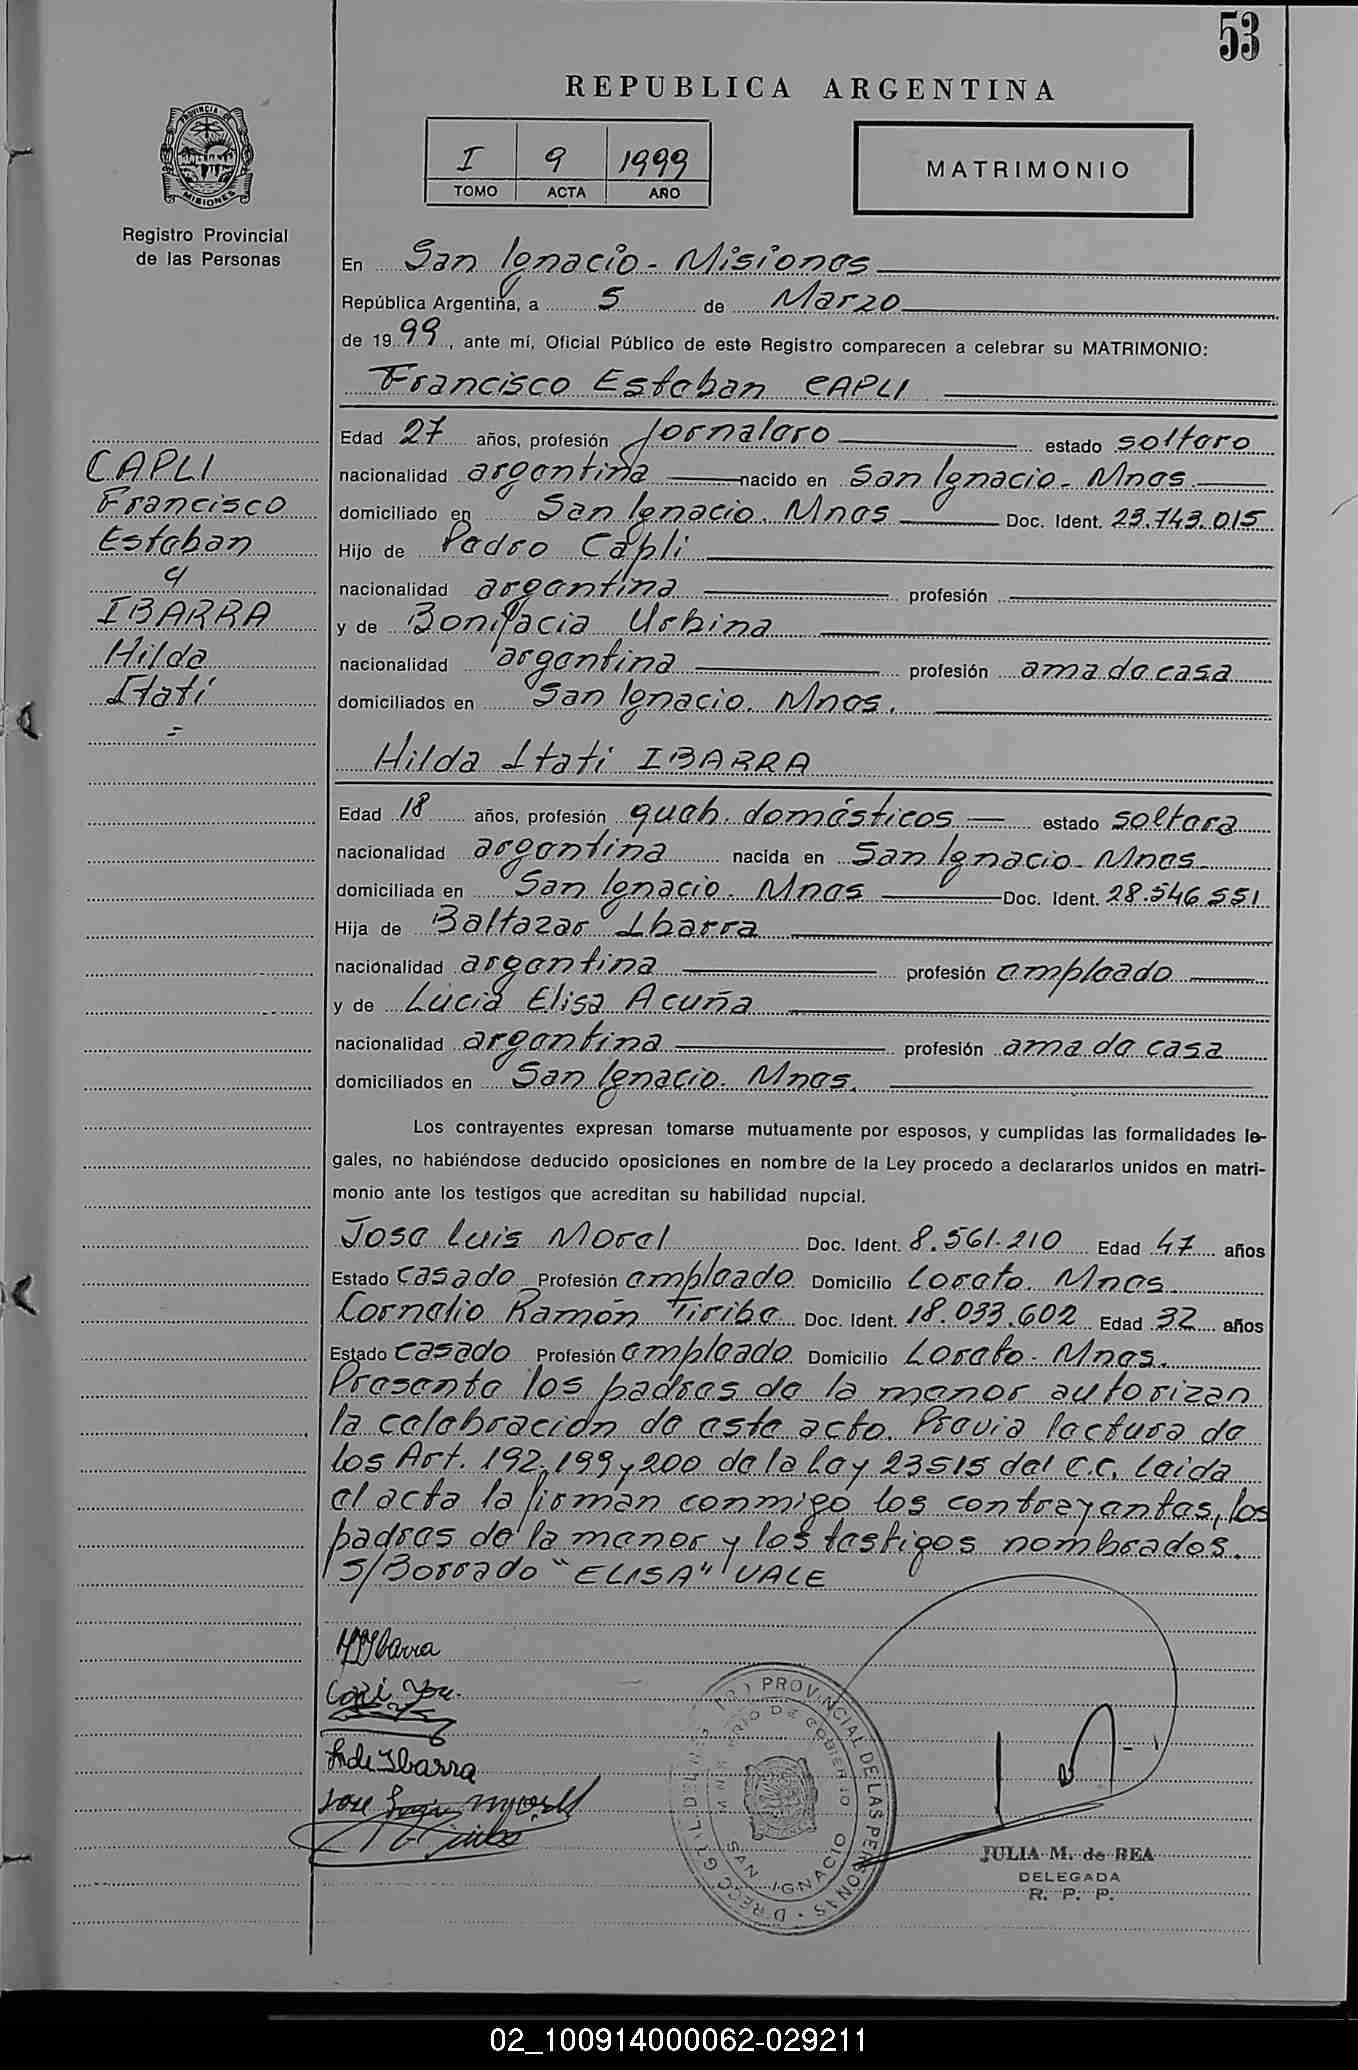 53
REPUBLICA ARGENTINA
I 9 1999
TOMO ACTA AÑO
MATRIMONIO
PROVINCIA DE
MISIONES
Registro Provincial
de las Personas
En San Ignacio - Misiones
República Argentina, a 5 de Marzo
de 1999, ante mí, Oficial Público de este Registro comparecen a celebrar su MATRIMONIO:
Francisco Esteban CAPLI
Edad 27 años, profesión Jornalero estado soltero
nacionalidad argentina nacido en San Ignacio - Mnes
domiciliado en San Ignacio. Mnes Doc. Ident. 23.743.015
Hijo de Pedro Capli
nacionalidad argentina profesión
y de Bonifacia Urbina
nacionalidad argentina profesión ama de casa
domiciliados en San Ignacio. Mnes.
CAPLI
Francisco
Esteban
y
IBARRA
Hilda
Itatí
=
Hilda Itatí IBARRA
Edad 18 años, profesión queh. domésticos — estado soltera
nacionalidad argentina nacida en San Ignacio - Mnes.
domiciliada en San Ignacio. Mnes Doc. Ident. 28.546.551
Hija de Baltazar Ibarra
nacionalidad argentina profesión empleado
y de Lucia Elisa Acuña
nacionalidad argentina profesión ama de casa
domiciliados en San Ignacio. Mnes.
Los contrayentes expresan tomarse mutuamente por esposos, y cumplidas las formalidades le-
gales, no habiéndose deducido oposiciones en nombre de la Ley procedo a declararlos unidos en matri-
monio ante los testigos que acreditan su habilidad nupcial.
Jose Luis Morel Doc. Ident. 8.561.210 Edad 47 años
Estado casado Profesión empleado Domicilio Loreto. Mnes.
Cornelio Ramón Tiribe Doc. Ident. 18.033.602 Edad 32 años
Estado casado Profesión empleado Domicilio Loreto - Mnes.
Presente los padres de la menor autorizan
la celebración de este acto. Previa lectura de
los Art. 192, 199 y 200 de la Ley 23515 del C.C. Leida
el acta la firman conmigo los contrayentes, los
padres de la menor y los testigos nombrados.
S/Borrado "ELISA" VALE
Ibarra
de Ibarra
Jose
DIRECC. GRAL. DEL REG. PROVINCIAL DE LAS PERSONAS
MINISTERIO DE GOBIERNO
SAN IGNACIO
JULIA M. de REA
DELEGADA
R. P. P.
02_100914000062-029211